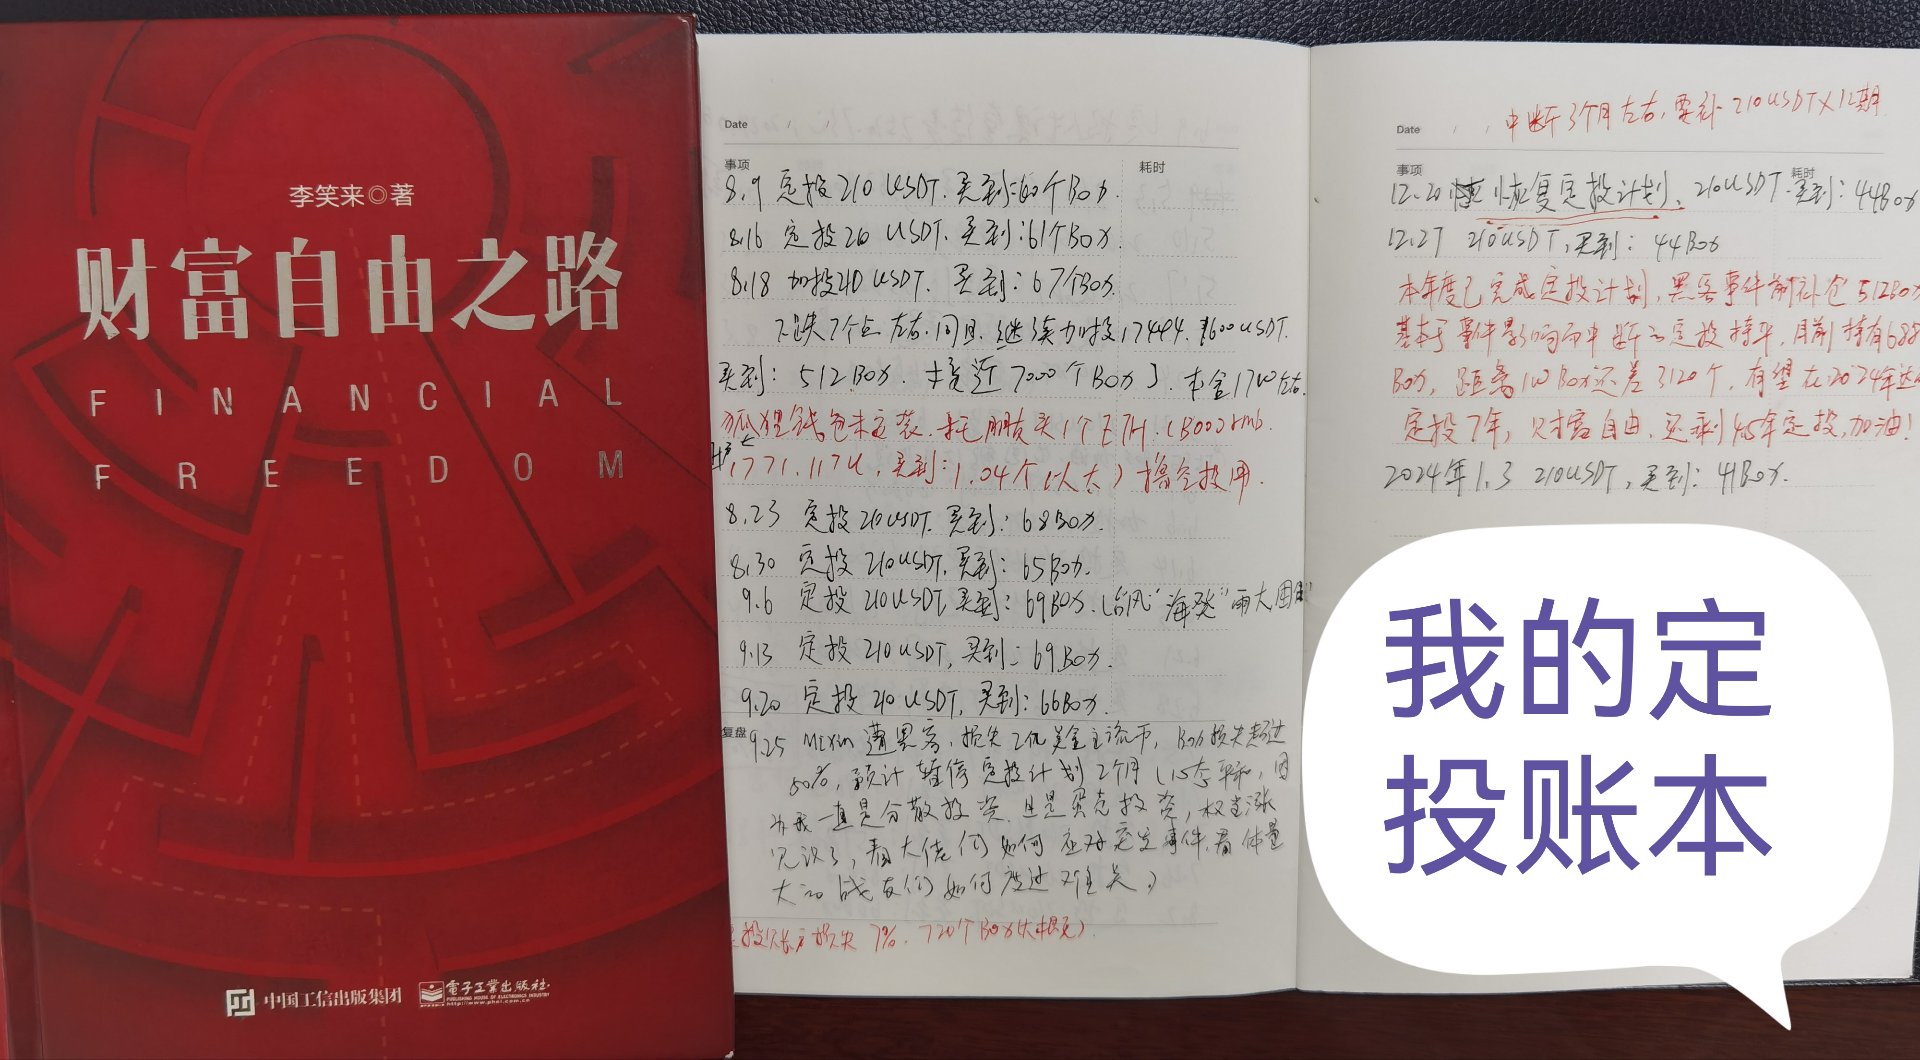 李笑来◎著
财富自由之路
FINANCIAL
FREEDOM
中国工信出版集团
電子工業出版社
PUBLISHING HOUSE OF ELECTRONICS INDUSTRY
http://www.phei.com.cn
Date / /
事项 耗时
8.9 定投210 USDT. 买到:60个Box.
8.16 定投210 USDT. 买到:61个Box.
8.18 加投210 USDT. 买到: 67个Box.
下跌7个点左右.同日.继续加投 1600USDT.
买到: 512Box. 接近7000个Box
狐狸钱包未安装.托朋友买1个ETH.
1771.117U, 买到: 1.04个(以太) 空投用.
8.23 定投210USDT. 买到: 68Box.
8.30 定投210USDT. 买到: 65Box.
9.6 定投210USDT, 买到: 69Box. (台风“海葵”雨大
9.13 定投210USDT, 买到: 69Box.
9.20 定投210USDT, 买到: 66Box.
复盘
9.25 Mixin遭黑客, 损失2亿美金主流币, Box损失超过
50%, 预计暂停定投计划2个月 (心态平和, 因
为我一直是分散投资.且是 投资, 权当涨
见识了, 看大佬们如何应对突发事件.看体量
大的战友们如何度过难关)
定投账户损失7%. 720个Box(大概).
Date / / 中断3个月左右, 要补210USDT×12期
事项 耗时
12.20 恢复定投计划, 210USDT. 买到: 44Box
12.27 210USDT, 买到: 44Box
本年度已完成定投计划, 黑客事件前补仓512Box
基本与事件影响而中断的定投持平, 目前持有688
Box, 距离 Box还差3120个, 有望在2024年达
定投7年, 财富自由, 还剩4.5年定投,加油!
2024年1.3 210USDT, 买到: 41Box.
我的定
投账本